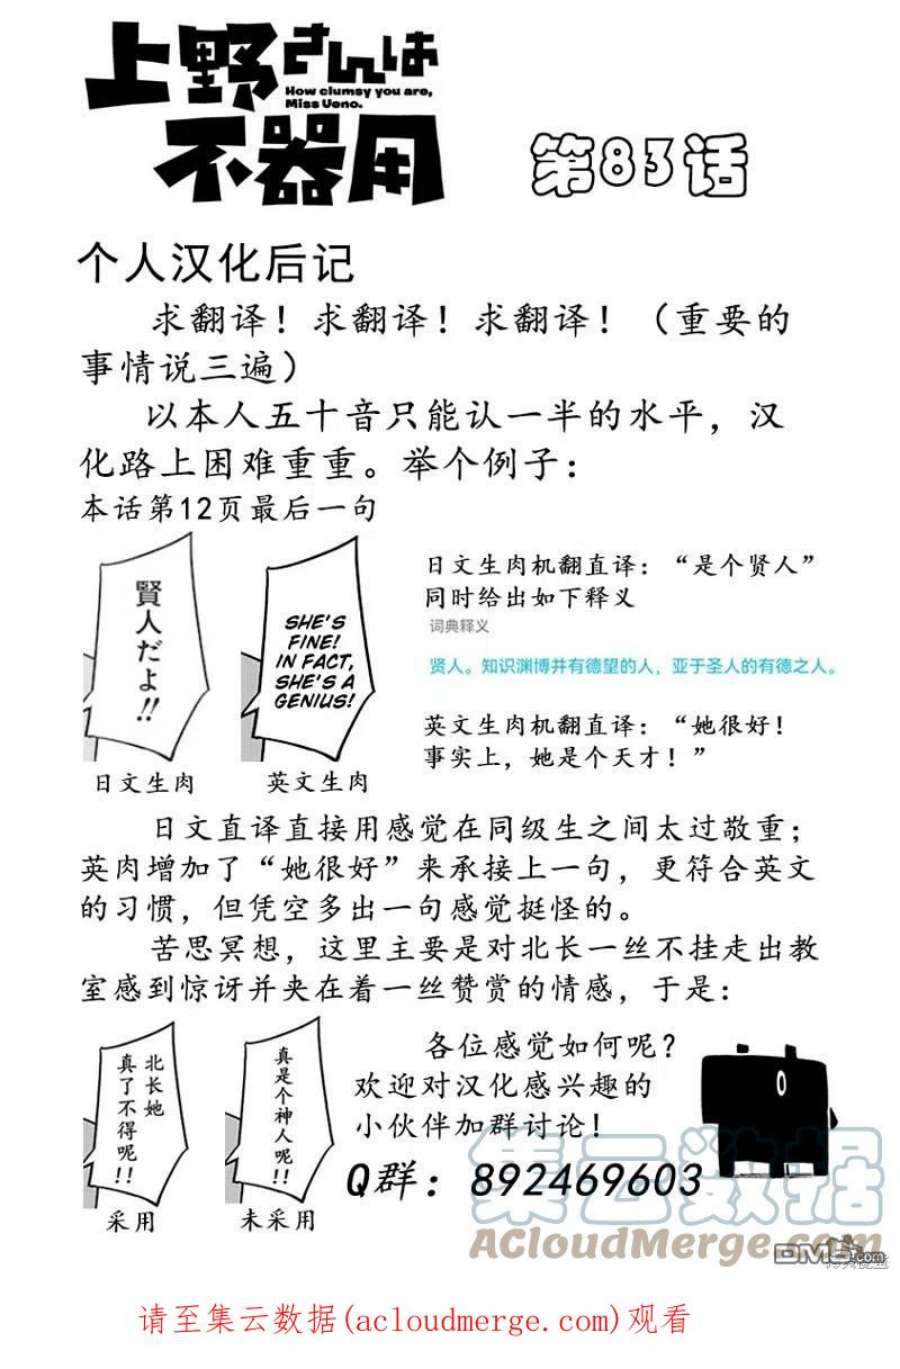 上野さんは
How clumsy you are,
Miss Ueno.
不器用
第83话
个人汉化后记
求翻译！求翻译！求翻译！（重要的
事情说三遍）
以本人五十音只能认一半的水平，汉
化路上困难重重。举个例子：
本话第12页最后一句
賢人だよ!!
日文生肉
SHE'S
FINE!
IN FACT,
SHE'S A
GENIUS!
英文生肉
日文生肉机翻直译：“是个贤人”
同时给出如下释义
词典释义
贤人。知识渊博并有德望的人，亚于圣人的有德之人。
英文生肉机翻直译：“她很好！
事实上，她是个天才！”
日文直译直接用感觉在同级生之间太过敬重；
英肉增加了“她很好”来承接上一句，更符合英文
的习惯，但凭空多出一句感觉挺怪的。
苦思冥想，这里主要是对北长一丝不挂走出教
室感到惊讶并夹在着一丝赞赏的情感，于是：
北长她
真了不得呢!!
采用
真是个神人呢!!
未采用
各位感觉如何呢？
欢迎对汉化感兴趣的
小伙伴加群讨论！
Q群：892469603
集云数据
ACloudMerge.com
DM5.com
请至集云数据(acloudmerge.com)观看